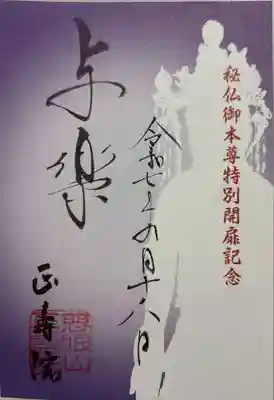 秘仏御本尊特別開扉記念
令和七年四月十八日
与楽
正寿院
慈眼山